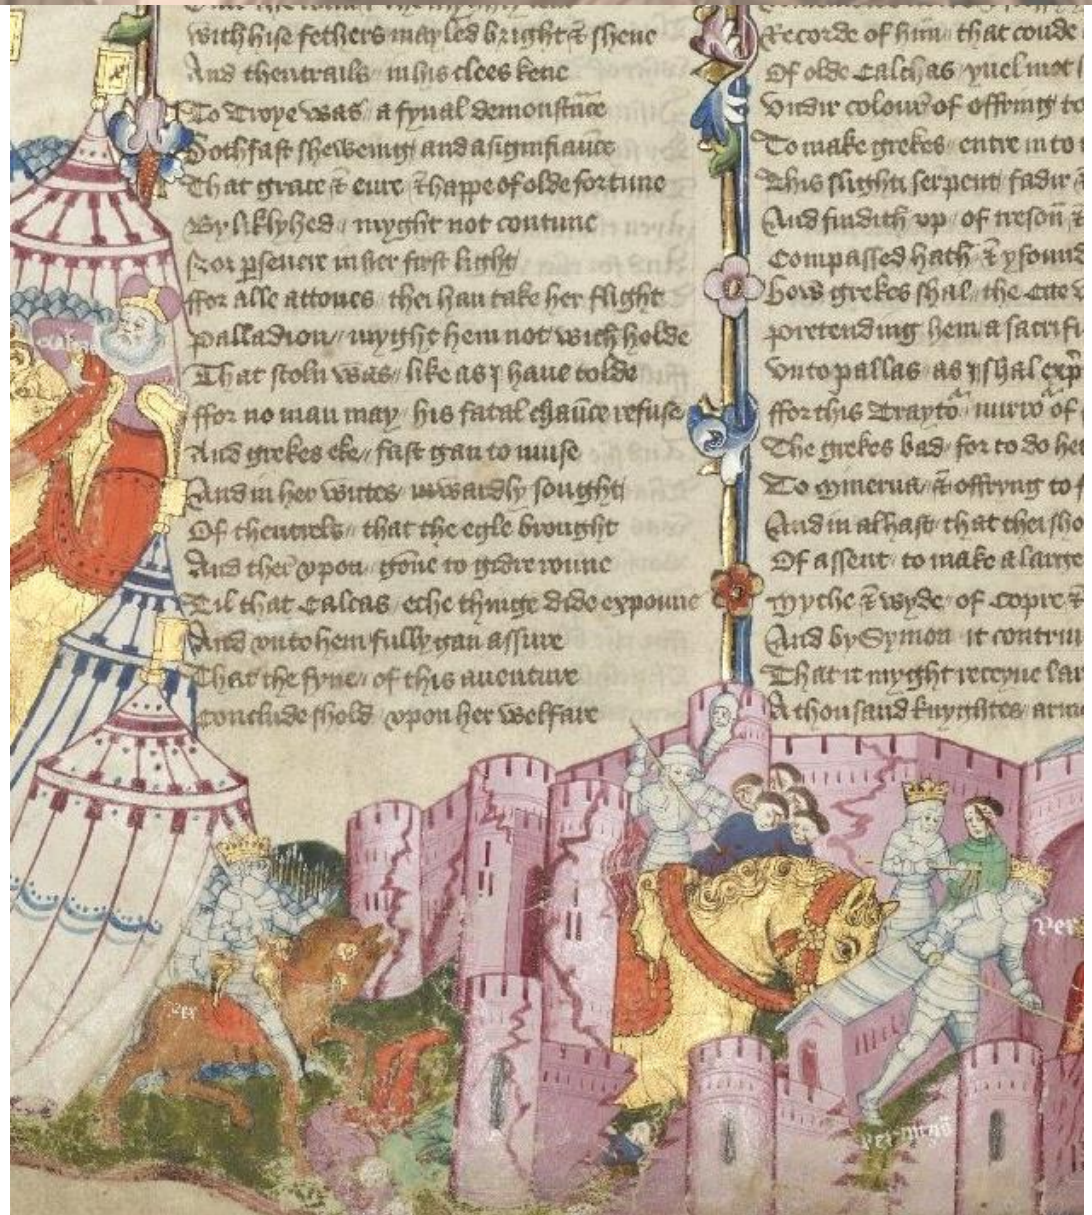 with hise fethers mayled bright & shene
And thentrails in his clees kene
To Troye was a fynal demonstᷓnce
Sothfast shewenig and a signifiance
That grace & eure & happe of olde fortune
By liklyhed myght not contune
Nor pseuere in her first light
ffor alle attones thei han take her flight
Palladion myght hem not with holde
That stoln was like as I haue tolde
ffor no man may his fatal chaūce refuse
And grekes eke fast gan to muse
And in her wittes inwardly sought
Of thentrels that the egle brought
And ther vpon gōne to gidre roune
Til that Calcas eche thinge dide expoune
And vnto hem fully gan assure
That the fyne of this auenture
Conclude shold vpon her welfare
Recorde of him that coude
Of olde Calchas yuel mot
Vndir colour of offring to
To make grekes entre in to
This slighti serpent fadir
And findith vp of tresoñ &
Compassed hath & yfound
How grekes shal the Cite
Pretending hem a sacrifi
Vnto pallas as I shal exp
ffor this Traytoʳ mirroʳ of
The grekes bad for to do he
To Minerua & offryng to
And in al hast that thei sho
Of assent to make a large
Myche & wyde of Copre &
And by Symon it contriu
That it myght receyue lar
A thousand knyghtes arme